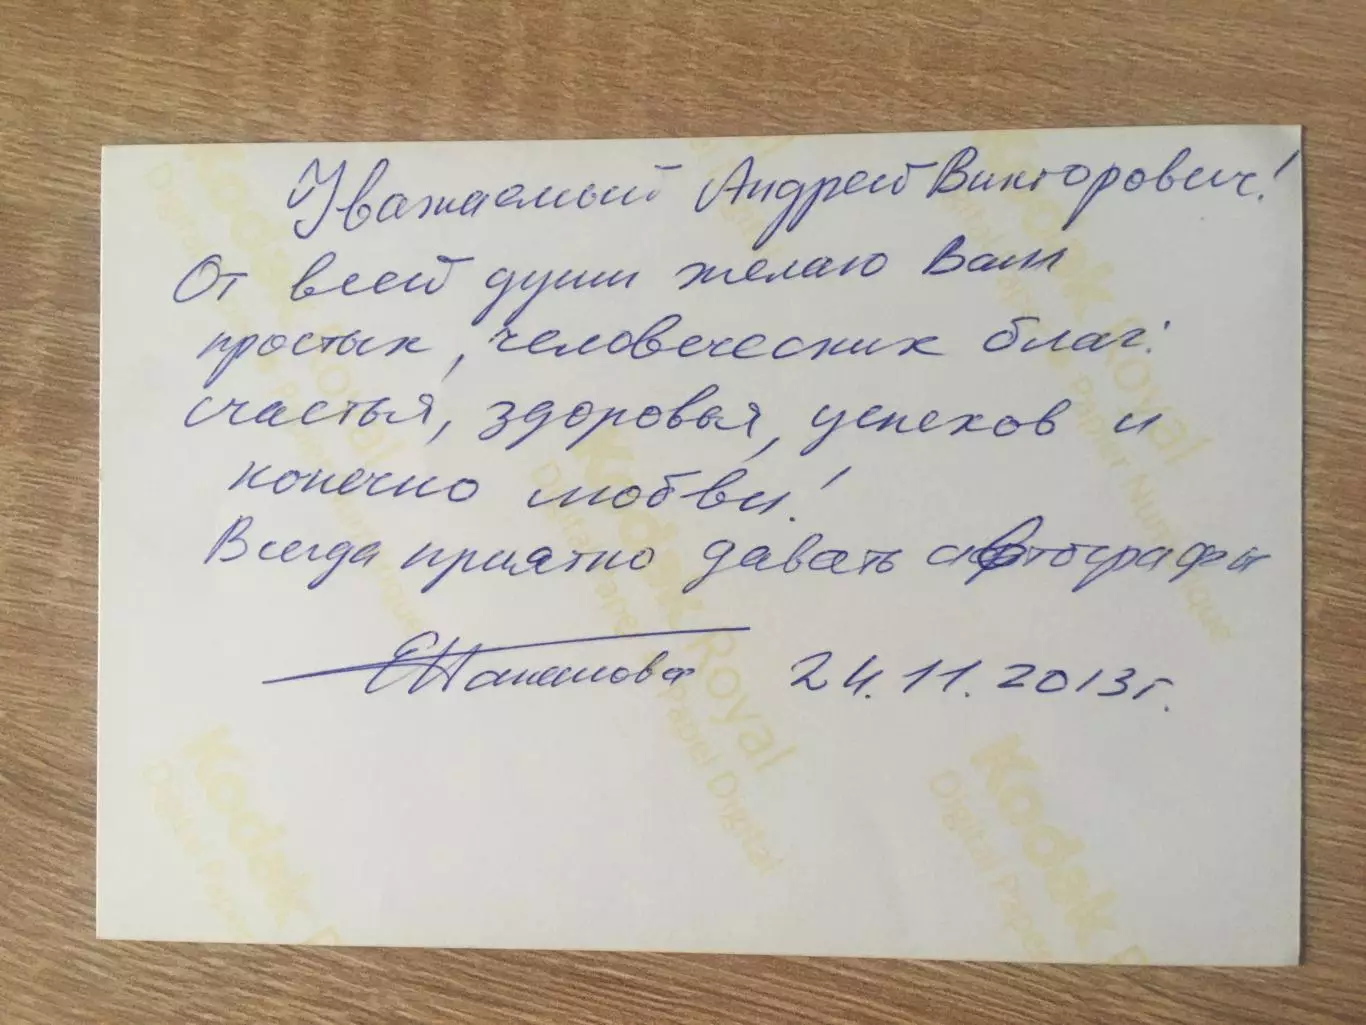 Уважаемый Андрей Викторович!
От всей души желаю Вам
простых, человеческих благ:
счастья, здоровья, успехов и
конечно любви!
Всегда приятно давать автографы
24.11.2013г.
Kodak Royal
Digital Paper Papier Numérique
Kodak Royal
Digital Paper Papier Numérique
Kodak Royal
Digital Paper Papel Digital
Kodak
Digital Paper
Kodak
Digital Paper